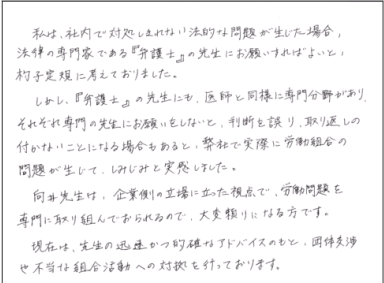 私は、社内で対処しきれない法的な問題が生じた場合、
法律の専門家である『弁護士』の先生にお願いすればよいと、
杓子定規に考えておりました。
しかし、『弁護士』の先生にも、医師と同様に専門分野があり、
それぞれ専門の先生にお願いをしないと、判断を誤り、取り返しの
付かないことになる場合もあると、弊社で実際に労働組合の
問題が生じて、しみじみと実感しました。
向井先生は、企業側の立場に立った視点で、労働問題を
専門に取り組んでおられるので、大変頼りになる方です。
現在は、先生の迅速かつ的確なアドバイスのもと、団体交渉
や不当な組合活動への対処を行っております。